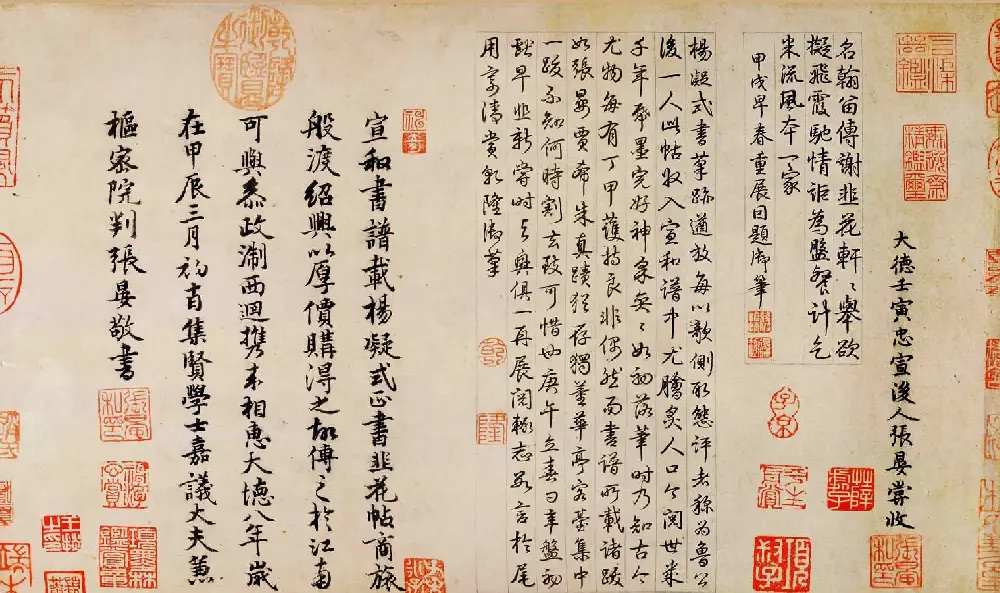 大德壬寅忠宣後人張晏嘗收
名翰留傳謝韭花軒〻舉欲
擬飛霞馳情詎為盤餐計乞
米流風本一家
甲戌早春重展因題御筆
楊凝式書草跡遒放每以欹側取態評者稱為魯公
後一人此帖收入宣和譜中尤膾炙人口今閱世來
千年紙墨完好神采奕〻如初落筆時乃知古今
尤物每有丁甲護持良非偶然而書譜所載諸跋
如張晏賈希朱真蹟猶存獨董華亭容臺集中
一跋不知何時割去殊可惜也庚午立春日辛盤初
早韭新嘗時與興俱一再展閱輒志數言於尾
用寄清賞乾隆御筆
乾
隆
乾隆御覽之寶
宣和書譜載楊凝式正書韭花帖商旅
般渡紹興以厚價購得之故傳之於江南
可與叅政淛西迴攜來相惠大德八年歲
在甲辰三月初吉集賢學士嘉議大夫兼
樞密院判張晏敬書
子京